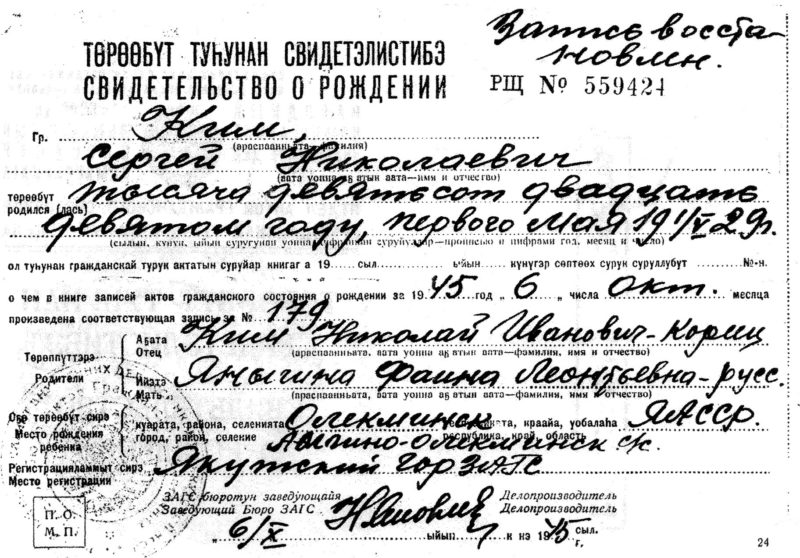 Запись восста-
новлен.
ТӨРӨӨБҮТ ТУҺУНАН СВИДЕТЭЛИСТИБЭ
СВИДЕТЕЛЬСТВО О РОЖДЕНИИ
РЩ № 559424
Гр. Ким,
(араспаанньата—фамилия)
Сергей Николаевич
(аата уонна аҕатын аата—имя и отчество)
төрөөбүт
родился (лась) тысяча девятьсот двадцать
девятом году, первого мая 19 1/V 29 г.
(сылын, күнүн, ыйын суругунан уонна сыыппаранан суруйуллар—прописью и цифрами год, месяц и число)
ол туһунан гражданскай турук актатын суруйар книгаҕа 19 сыл ыйын күнүгэр сөптөөх сурук суруллубут №-н.
о чем в книге записей актов гражданского состояния о рождении за 1945 год „6„ числа окт. месяца
произведена соответствующая запись за № 179
Төрөппүттэрэ
Родители
Аҕата
Отец Ким Николай Иванович - Кориц
(араспаанньата, аата уонна аҕатын аата—фамилия, имя и отчество)
Ийэтэ
Мать Яныгина Фаина Леонтьевна - русс.
(араспаанньата, аата уонна аҕатын аата—фамилия, имя и отчество)
Оҕо төрөөбүт сирэ
Место рождения
ребенка
куората, района, селенията Олекминск республиката, краайа, уобалаһа ЯАССР.
город, район, селение республика, край, область
Регистрацияламмыт сирэ
Место регистрации Якутский горЗАГС
ЗАГС бюротун заведующайа
Заведующий Бюро ЗАГС
Делопроизводитель
Делопроизводитель
П. О.
М. П.
„6/X„ ыйын к нэ 1945 сыл.
г.
24